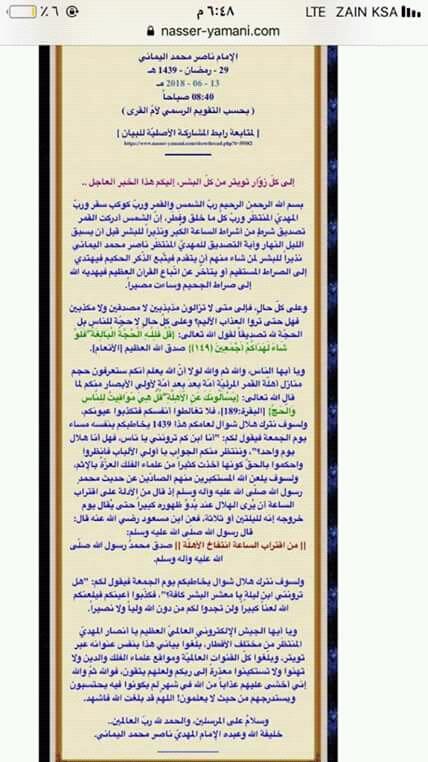 ٪٦ ٦:٤٨ م LTE ZAIN KSA
nasser-yamani.com
الإمام ناصر محمد اليماني
29 - رمضان - 1439 هـ
13 - 06 - 2018 مـ
08:40 صباحاً
( بحسب التقويم الرسمي لأم القرى )
[ لمتابعة رابط المشاركة الأصلية للبيان ]
إلى كلّ زوّار تويتر من كلّ البشر، إليكم هذا الخبر العاجل ..
بسم الله الرحمن الرحيم ربّ الشمس والقمر وربّ كوكب سقر وربّ
المهديّ المنتظر وربّ كلّ ما خلق وفطر، إنّ الشمس أدركت القمر
تصديق شرطٍ من أشراط الساعة الكبر ونذيراً للبشر قبل أن يسبق
الليل النهار وآية التصديق للمهديّ المنتظر ناصر محمد اليماني
نذيراً للبشر لمن شاء منهم أن يتقدم فيتّبع الذّكر الحكيم فيهتدي
إلى الصراط المستقيم أو يتأخر عن اتّباع القرآن العظيم فيهديه الله
إلى صراط الجحيم وساءت مصيراً.
وعلى كلّ حالٍ، فإلى متى لا تزالون مذبذبين لا مصدقين ولا مكذبين
فهل حتى تروا العذاب الأليم؟ وعلى كلّ حالٍ لا حجّة للناس بل
الحجة لله تصديقاً لقول الله تعالى: {قُلْ فَلِلَّهِ الْحُجَّةُ الْبَالِغَةُ ۖ فَلَوْ
شَاءَ لَهَدَاكُمْ أَجْمَعِينَ (١٤٩)} صدق الله العظيم [الأنعام].
ويا أيها الناس، والله ثم والله لولا أنّ الله يعلم أنكم ستعرفون حجم
منازل أهلّة القمر المرئيّة أمّة بعد أمة لأولي الأبصار منكم لما
قال الله تعالى: {يَسْأَلُونَكَ عَنِ الْأَهِلَّةِ ۖ قُلْ هِيَ مَوَاقِيتُ لِلنَّاسِ
وَالْحَجِّ} [البقرة:189]، فلا تغالطوا أنفسكم فتكذّبوا عيونكم،
ولسوف نترك هلال شوال لعامكم هذا 1439 يخاطبكم بنفسه مساء
يوم الجمعة فيقول لكم: "أنا ابن كم ترونني يا ناس، فهل أنا هلال
يوم واحد؟"، وننتظر منكم الجواب يا أولي الألباب فانظروا
واحكموا بالحقّ كونها أخذت كثيراً من علماء الفلك العزّة بالإثم،
ولسوف يلعن الله المستكبرين منهم الصادّين عن حديث محمد
رسول الله صلّى الله عليه وآله وسلم إذ قال من الأدلة على اقتراب
الساعة أن يُرى الهلال عند بدُوّ ظهوره كبيراً حتى يُقال يوم
خروجه إنه لليلتين أو ثلاثة، فعن ابن مسعود رضي الله عنه قال:
قال رسول الله صلى الله عليه وسلم:
|| من اقتراب الساعة انتفاخ الأهلّة || صدق محمدٌ رسول الله صلّى
الله عليه وآله وسلم.
ولسوف نترك هلال شوال يخاطبكم يوم الجمعة فيقول لكم: "هل
ترونني ابن ليلة يا معشر البشر كافة؟"، فكذّبوا أعينكم فيلعنكم
الله لعناً كبيراً ولن تجدوا لكم من دون الله ولياً ولا نصيراً.
ويا أيها الجيش الإلكتروني العالميّ العظيم يا أنصار المهديّ
المنتظر من مختلف الأقطار، بلغوا بياني هذا بنفس عنوانه عبر
تويتر، وبلغوا كلّ القنوات العالميّة ومواقع علماء الفلك والدين ولا
تهنوا ولا تستكينوا معذرة إلى ربكم ولعلهم يتقون، فوالله ثمّ والله
إني أخشى عليهم عذاباً من الله في شهرٍ لم يكونوا فيه يحتسبون
ويستدرجهم من حيث لا يعلمون! اللهم قد بلغت الله فاشهد.
وسلامٌ على المرسلين، والحمد لله ربّ العالمين..
خليفة الله وعبده الإمام المهديّ ناصر محمد اليماني.